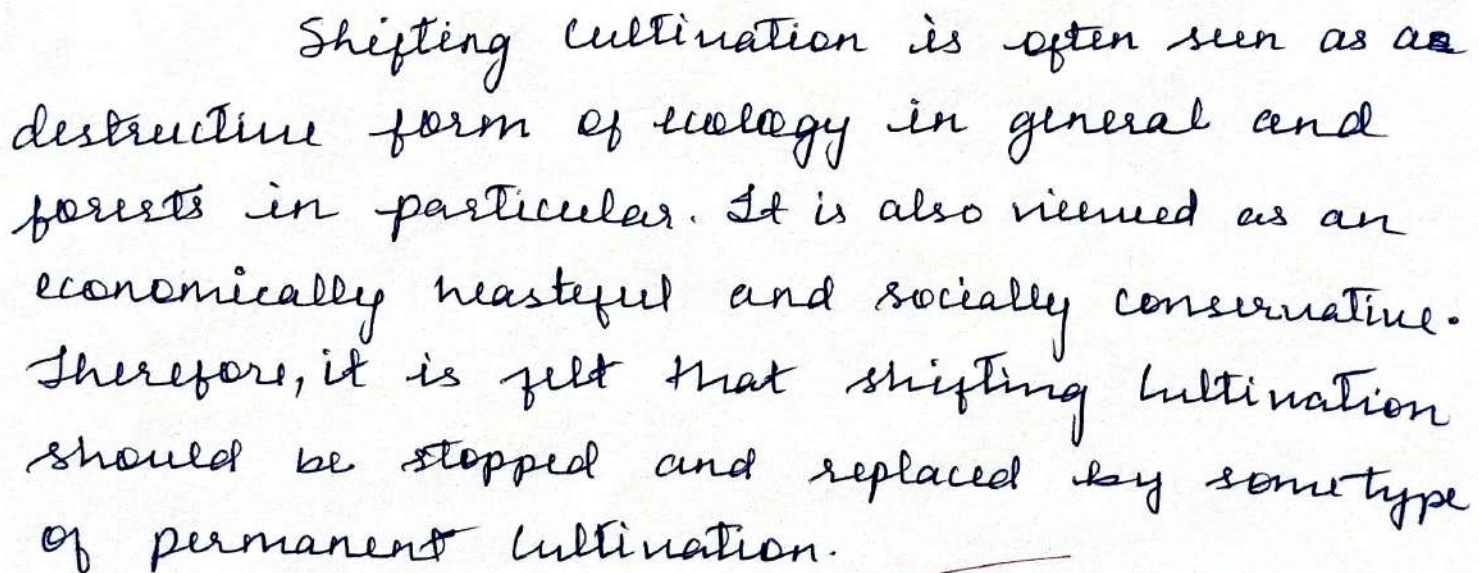 Shifting Cultivation is often seen as a
destructive form of ecology in general and
forests in particular. It is also viewed as an
economically wasteful and socially conservative.
Therefore, it is felt that shifting Cultivation
should be stopped and replaced by some type
of permanent Cultivation.